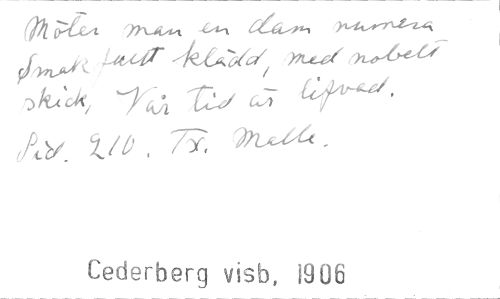 Möter man en dam numera
Smakfullt klädd, med nobelt
skick, Vår tid är lifvad.
Sid. 210. Tx. Malle.
Cederberg visb, 1906